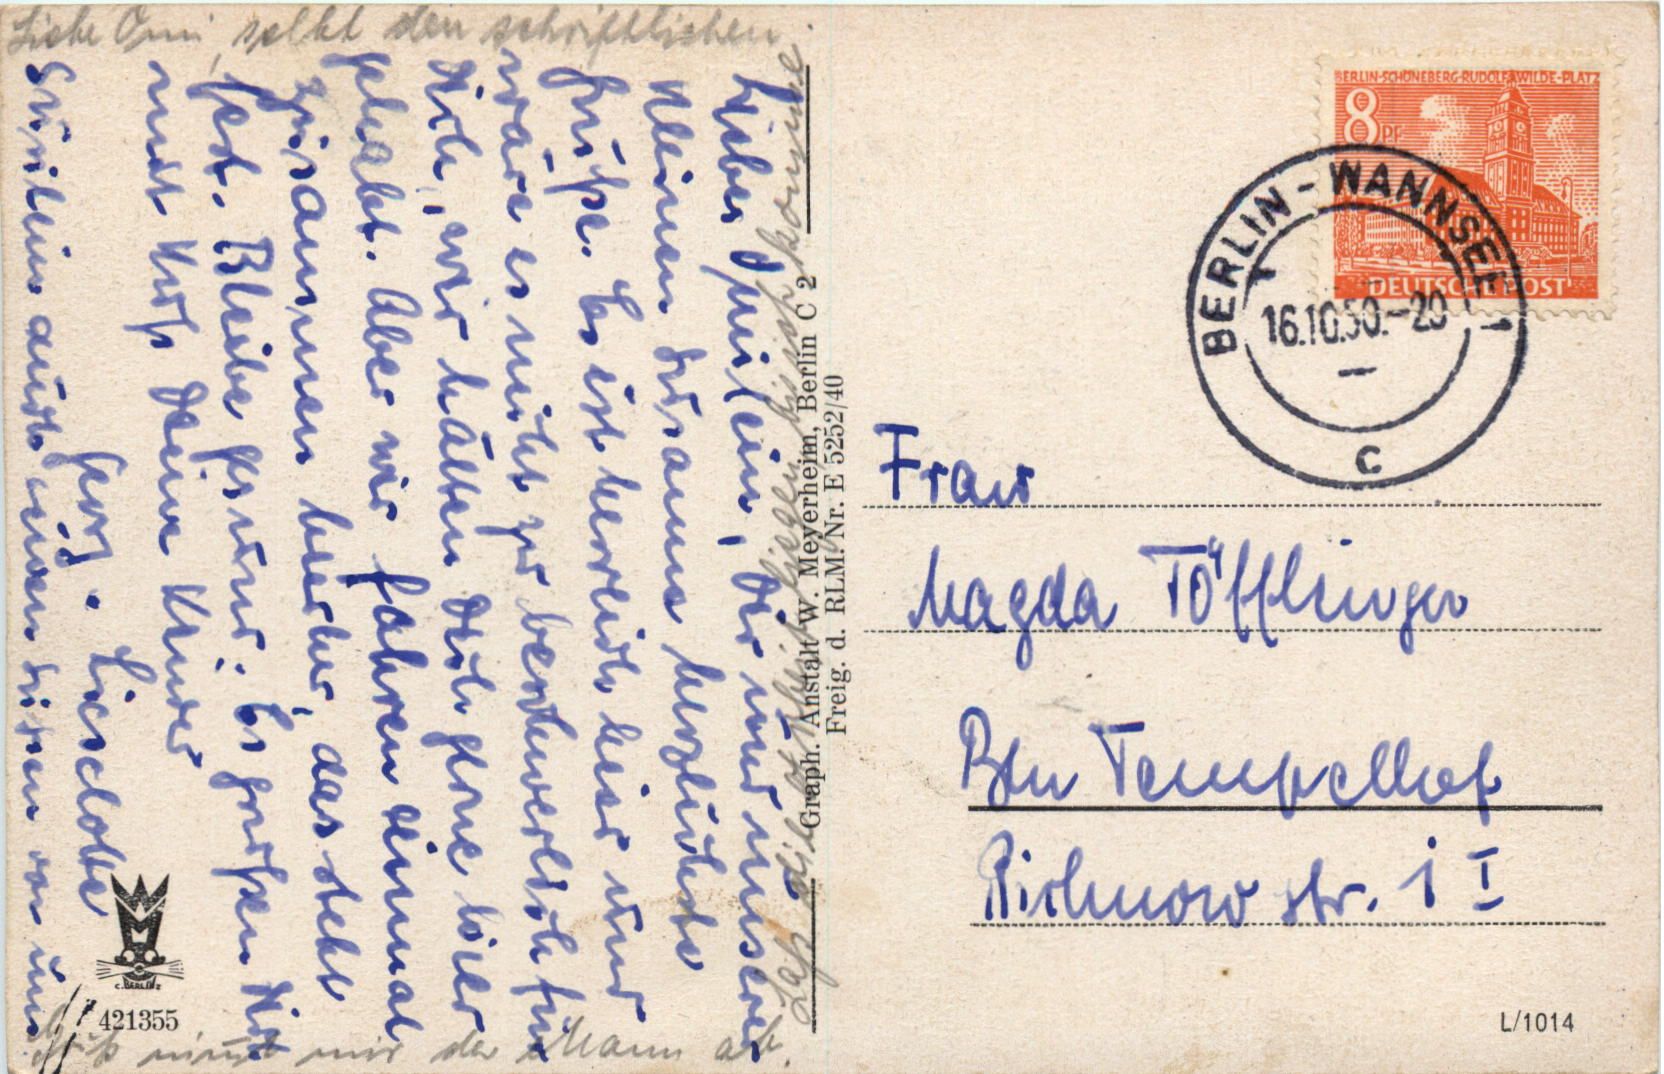 Liebe Omi, selbst den schriftlichen
Gruß nimmt mir der Mann ab.
Lieber Omilein, Dir und unserer
kleinen Susanne herzlichste
Grüße. Es ist herrlich hier und
wäre es nicht zu beschwerlich für
Dich, wir hätten Dich gerne hier
gehabt. Aber wir fahren einmal
zusammen hierher, das steht
fest. Bleibe gesund. Es grüßen Dich
und Kuß Deine Kinder
Georg u. Lieselotte
Graph. Anstalt W. Meyerheim, Berlin C 2
Freig. d. RLM. Nr. E 5252/40
M
C. BERLIN 2
421355
BERLIN-SCHÖNEBERG·RUDOLF-WILDE-PLATZ
8 PF
DEUTSCHE POST
BERLIN-WANNSEE 1
16.10.50.-20
c
Frau
Magda Töfflinger
Bln Tempelhof
str. 1 I
L/1014